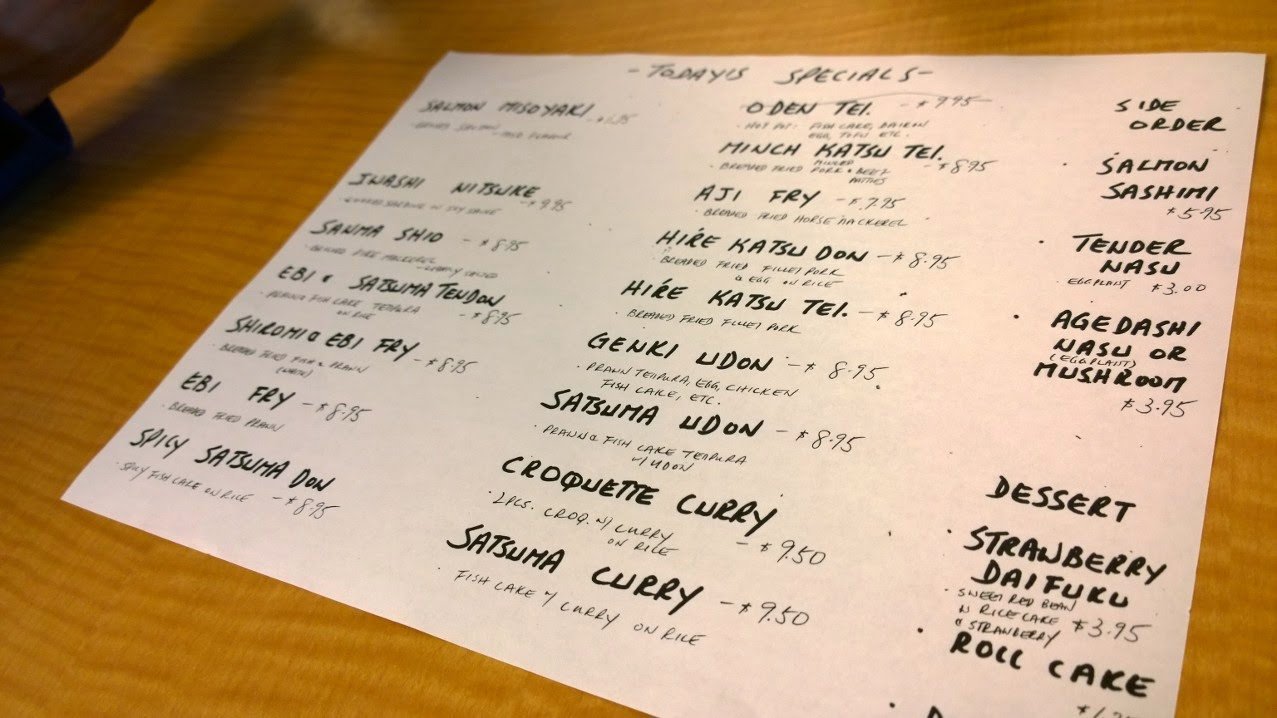 -TODAY'S SPECIALS-
SALMON MISOYAKI
IWASHI NITSUKE
-$9.95
SANMA SHIO -$8.95
EBI & SATSUMA TENDON
PRAWN & FISH CAKE TEMPURA
ON RICE -$8.95
SHIROMI & EBI FRY -$8.95
BREADED FRIED FISH & PRAWN
EBI FRY -$8.95
BREADED FRIED PRAWN
SPICY SATSUMA DON
SPICY FISH CAKE ON RICE -$8.95
ODEN TEI. -$9.95
HOT POT: FISH CAKE, DAIKON
EGG, TOFU ETC.
MINCH KATSU TEI.
BREADED FRIED MINCED PORK & BEEF -$8.95
PATTIES
AJI FRY -$7.95
BREADED FRIED HORSE MACKEREL
HIRE KATSU DON -$8.95
BREADED FRIED FILLET PORK
& EGG ON RICE
HIRE KATSU TEI. -$8.95
BREADED FRIED FILLET PORK
GENKI UDON -$8.95
PRAWN TEMPURA, EGG, CHICKEN
FISH CAKE, ETC.
SATSUMA UDON -$8.95
PRAWN & FISH CAKE TEMPURA
W/ UDON
CROQUETTE CURRY
2PCS. CROQ. W/ CURRY
ON RICE -$9.50
SATSUMA CURRY -$9.50
FISH CAKE W/ CURRY ON RICE
SIDE
ORDER
SALMON
SASHIMI
$5.95
TENDER
NASU
EGGPLANT $3.00
AGEDASHI
NASU OR
(EGGPLANT)
MUSHROOM
$3.95
DESSERT
STRAWBERRY
DAIFUKU
SWEET RED BEAN
IN RICE CAKE $3.95
& STRAWBERRY
ROLL CAKE